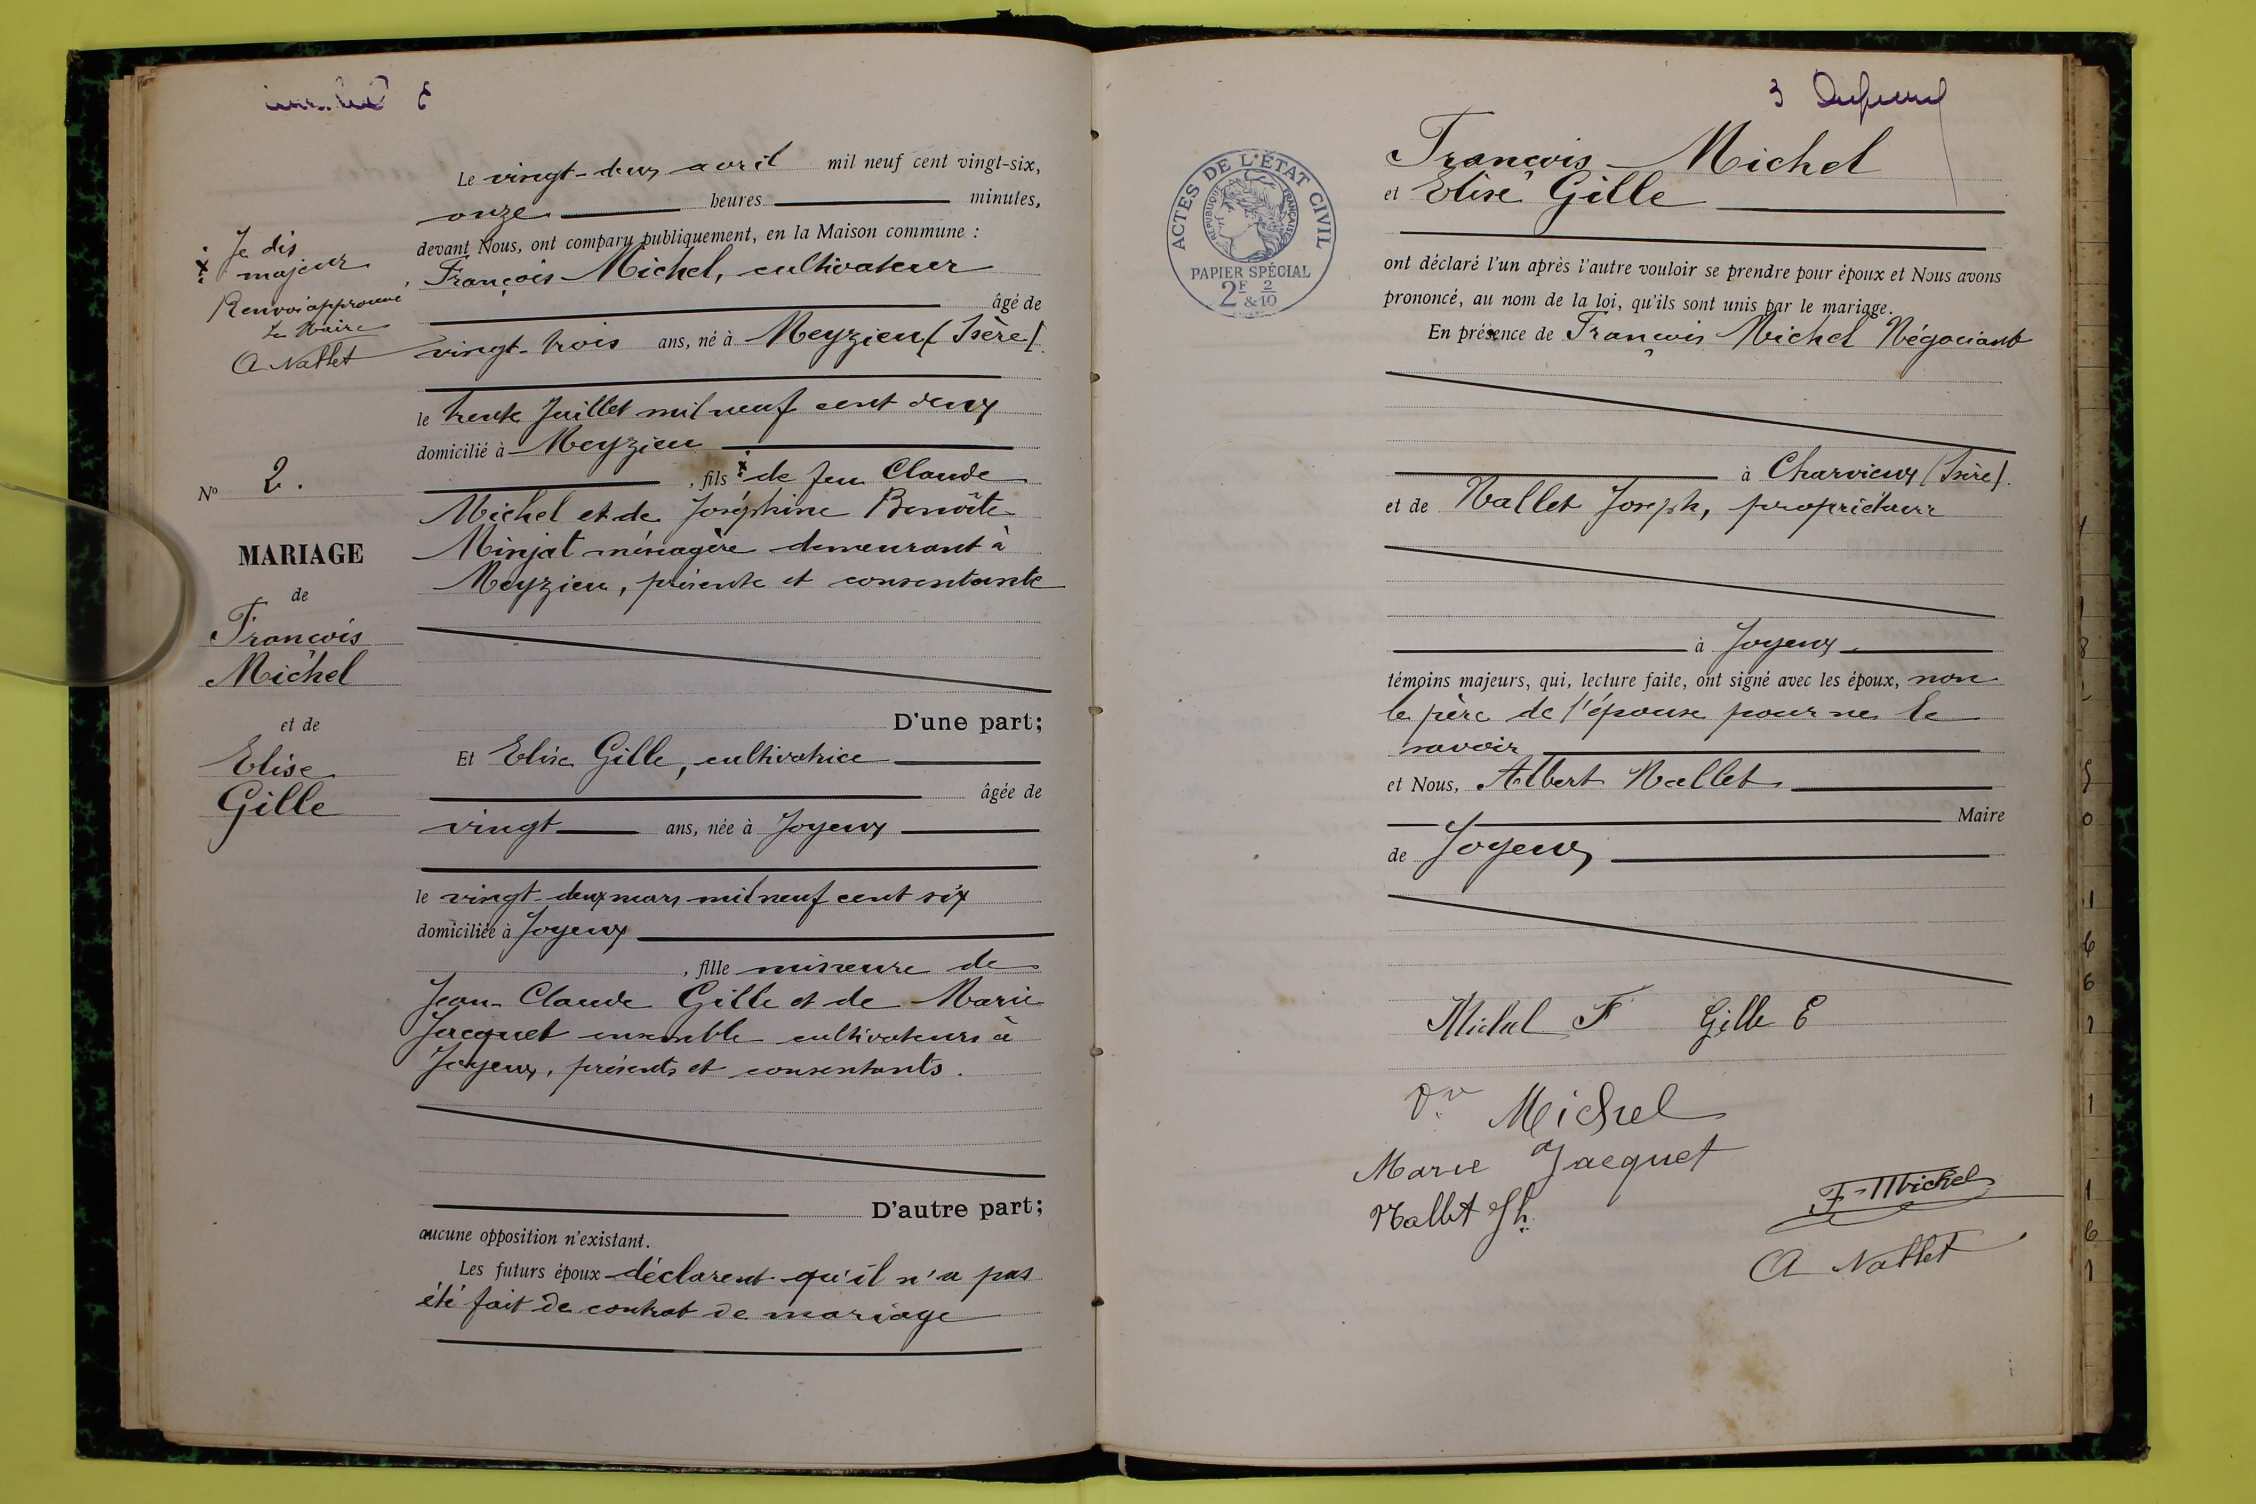 Le vingt-deux avril mil neuf cent vingt-six,
onze heures minutes,
devant Nous, ont comparu publiquement, en la Maison commune :
François Michel, cultivateur
âgé de
vingt-trois ans, né à Meyzieu (Isère)
le trente Juillet mil neuf cent deux
domicilié à Meyzieu
, fils x de feu Claude
Michel et de Joséphine Benoîte
Minjat ménagère demeurant à
Meyzieu, présente et consentante
D'une part;
Et Elise Gille, cultivatrice
âgée de
vingt ans, née à Joyeux
le vingt-deux mars mil neuf cent six
domiciliée à Joyeux
, fille mineure de
Jean-Claude Gille et de Marie
Jacquet ensemble cultivateurs à
Joyeux, présents et consentants.
D'autre part;
aucune opposition n'existant.
Les futurs époux déclarent qu'il n'a pas
été fait de contrat de mariage
x Je dis
majeur
Renvoi approuvé
Le Maire
A Nallet
No 2.
MARIAGE
de
François
Michel
et de
Elise
Gille
3
François Michel
et Elise Gille
ACTES DE L'ÉTAT CIVIL
RÉPUBLIQUE FRANÇAISE
PAPIER SPÉCIAL
2F & 2/10
ont déclaré l'un après l'autre vouloir se prendre pour époux et Nous avons
prononcé, au nom de la loi, qu'ils sont unis par le mariage.
En présence de François Michel Négociant
à Charvieux (Isère).
et de Nallet Joseph, propriétaire
à Joyeux
témoins majeurs, qui, lecture faite, ont signé avec les époux, non
le père de l'épouse pour ne le
savoir
et Nous, Albert Nallet
Maire
de Joyeux
Michel F Gille E
Vve Michel
Marie Jacquet
Nallet Jh
F. Michel
A Nallet